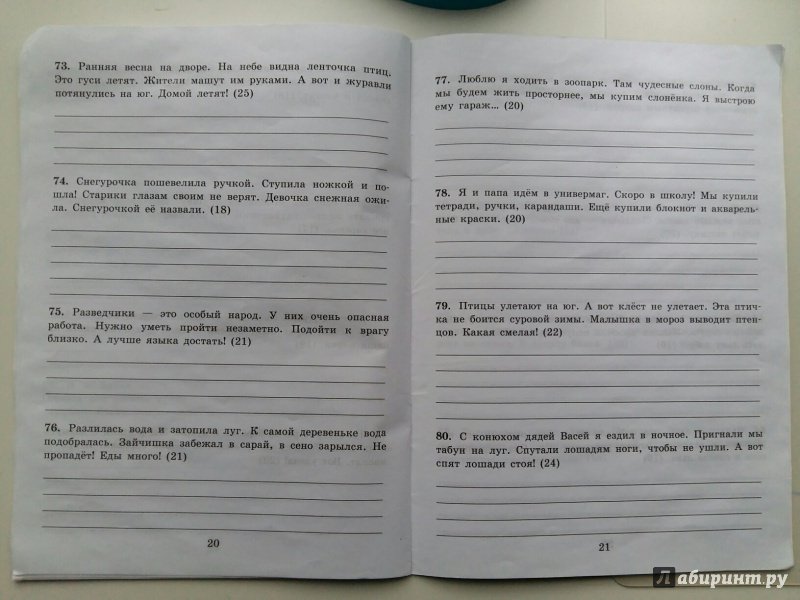 73. Ранняя весна на дворе. На небе видна ленточка птиц.
Это гуси летят. Жители машут им руками. А вот и журавли
потянулись на юг. Домой летят! (25)
74. Снегурочка пошевелила ручкой. Ступила ножкой и по-
шла! Старики глазам своим не верят. Девочка снежная ожи-
ла. Снегурочкой её назвали. (18)
75. Разведчики — это особый народ. У них очень опасная
работа. Нужно уметь пройти незаметно. Подойти к врагу
близко. А лучше языка достать! (21)
76. Разлилась вода и затопила луг. К самой деревеньке вода
подобралась. Зайчишка забежал в сарай, в сено зарылся. Не
пропадёт! Еды много! (21)
20
77. Люблю я ходить в зоопарк. Там чудесные слоны. Когда
мы будем жить просторнее, мы купим слонёнка. Я выстрою
ему гараж... (20)
78. Я и папа идём в универмаг. Скоро в школу! Мы купили
тетради, ручки, карандаши. Ещё купили блокнот и акварель-
ные краски. (20)
79. Птицы улетают на юг. А вот клёст не улетает. Эта птич-
ка не боится суровой зимы. Малышка в мороз выводит птен-
цов. Какая смелая! (22)
80. С конюхом дядей Васей я ездил в ночное. Пригнали мы
табун на луг. Спутали лошадям ноги, чтобы не ушли. А вот
спят лошади стоя! (24)
21
Лабиринт.ру